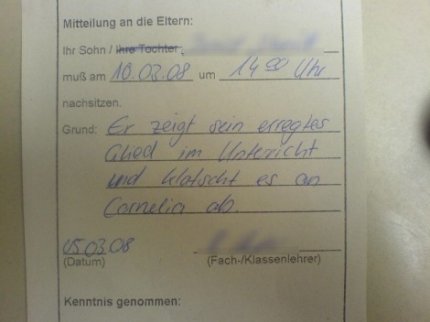 Mitteilung an die Eltern:
Ihr Sohn / Ihre Tochter
muß am 10.03.08 um 14 00 Uhr
nachsitzen.
Grund: Er zeigt sein erregtes
Glied im Unterricht
und klatscht es an
Cornelia ab.
05.03.08
(Datum) (Fach-/Klassenlehrer)
Kenntnis genommen: